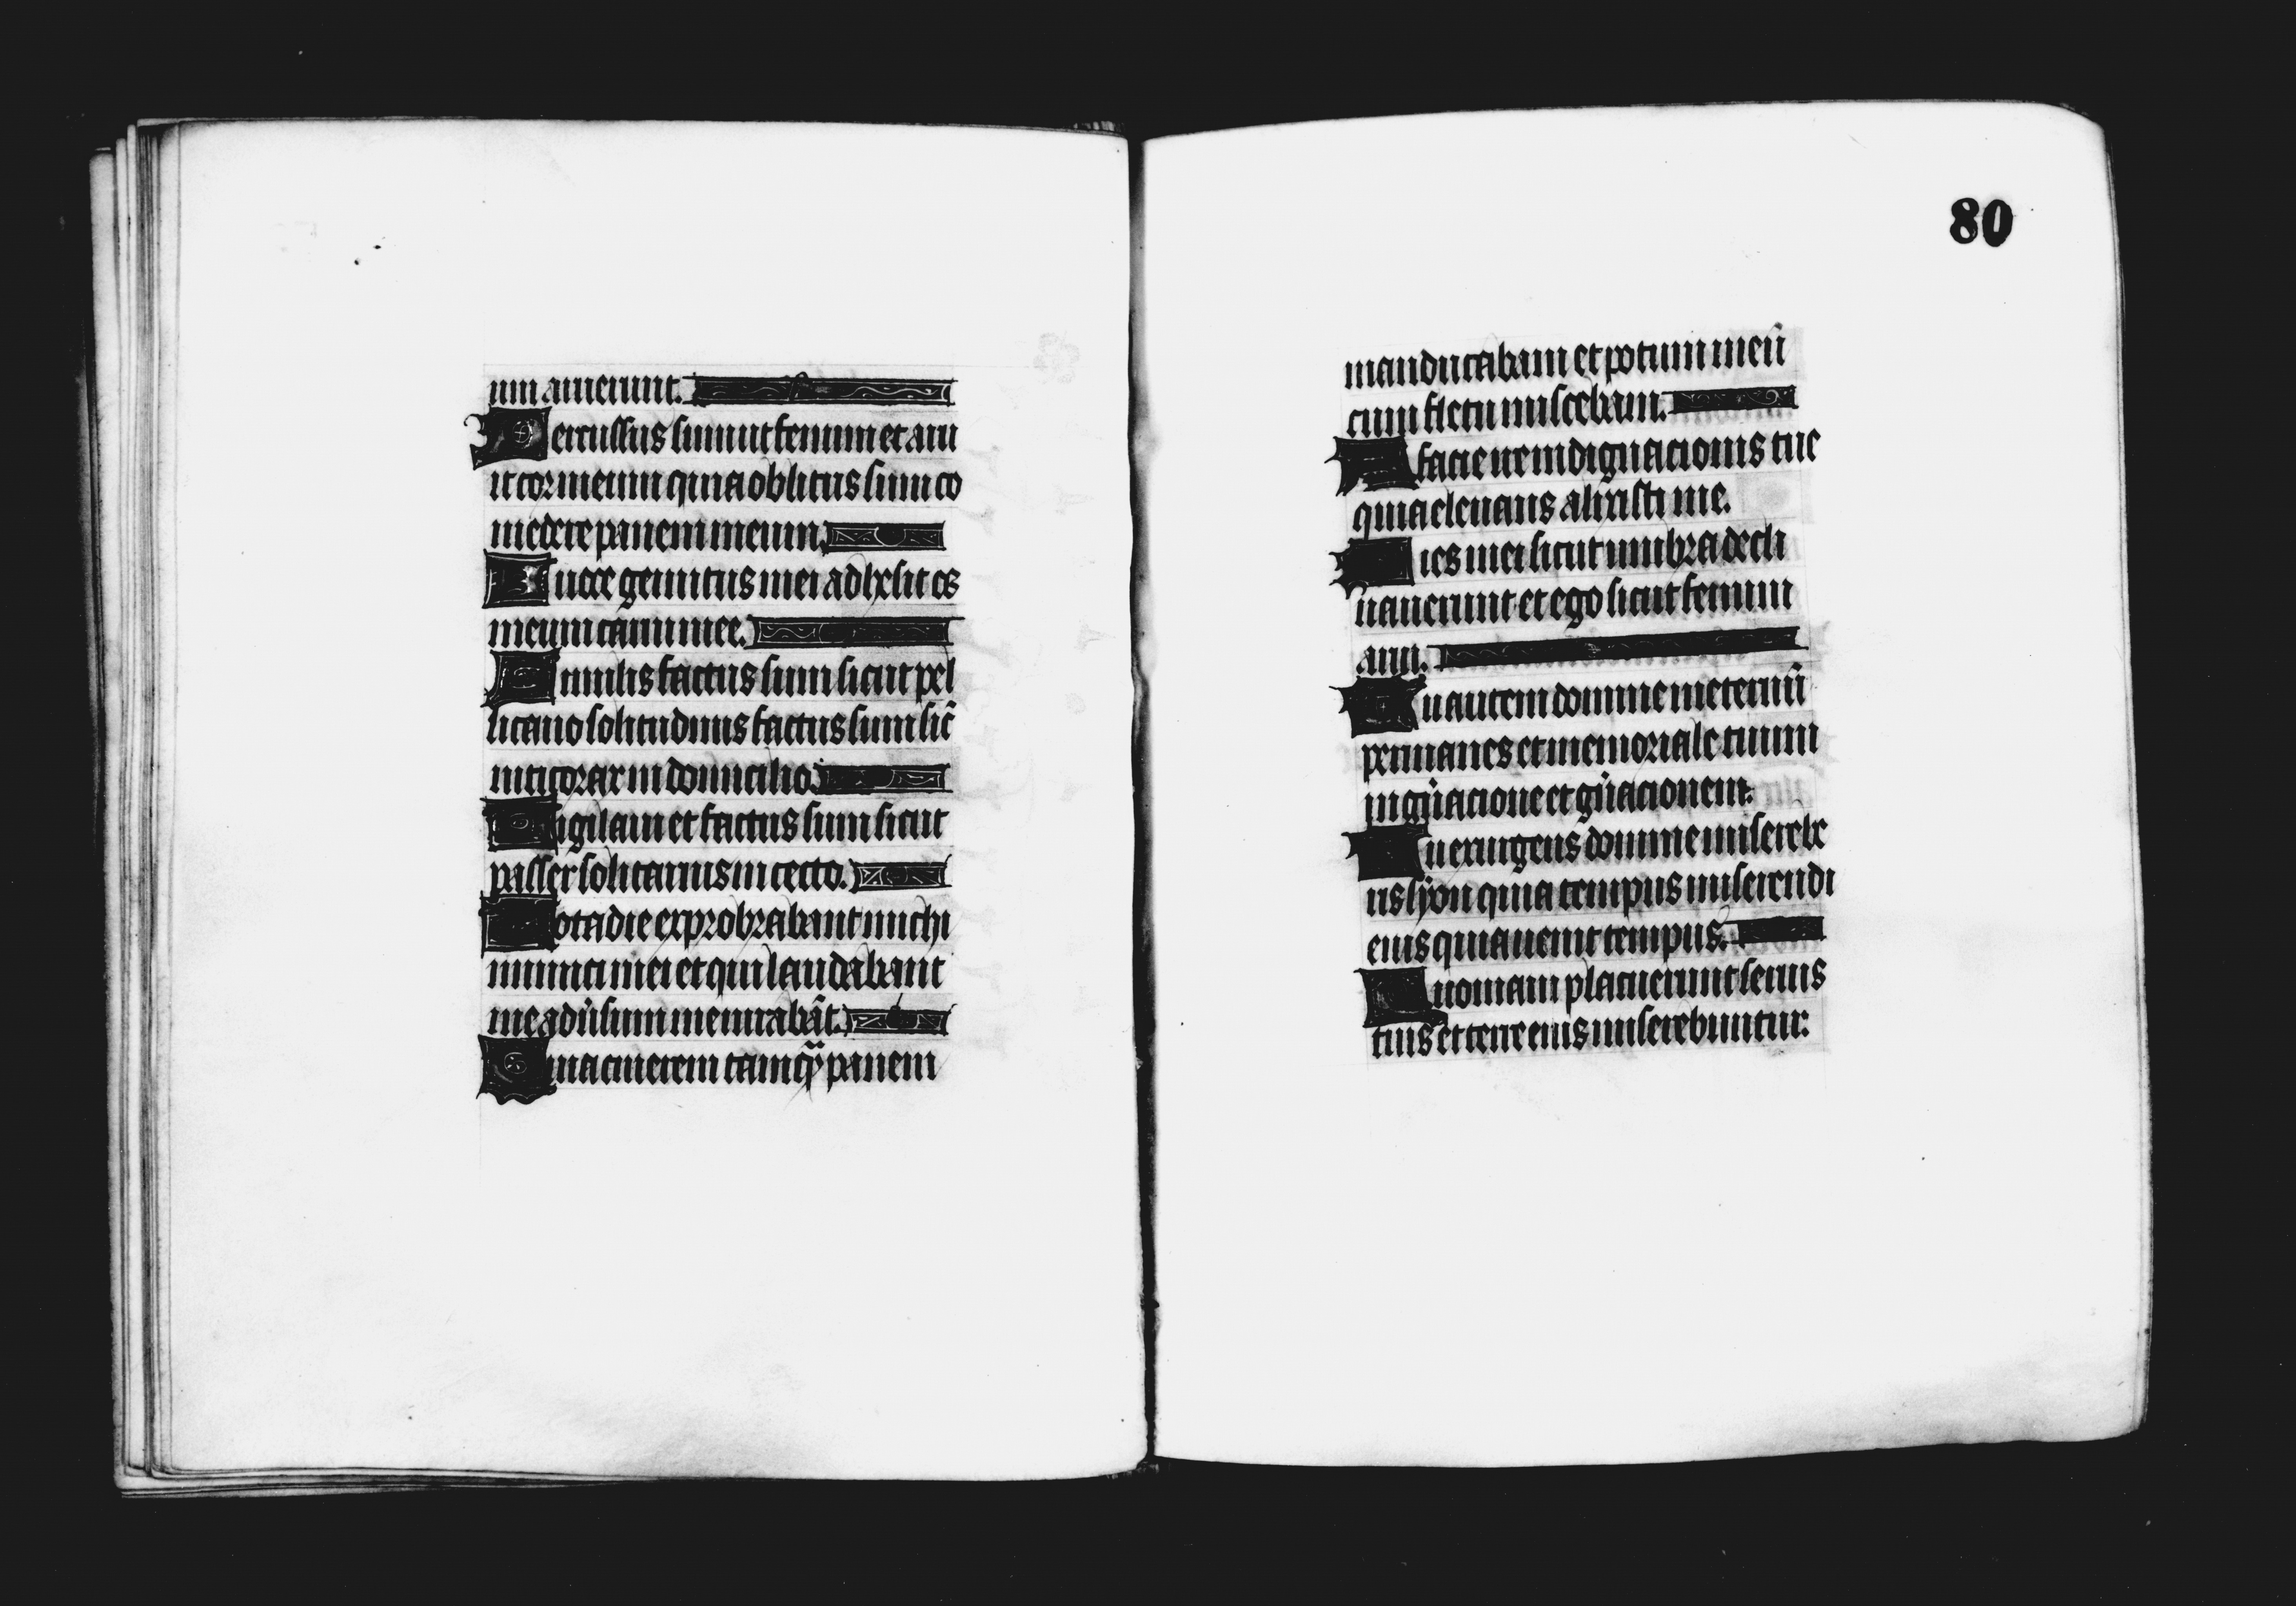 um aruerunt.
Percussus sum ut fenum et aru
it cor meum quia oblitus sum co
medere panem meum.
A uoce gemitus mei adhesit os
meum carni mee.
Similis factus sum sicut pel
licano solitudinis factus sum sic̄
niticorax in domicilio.
Uigilaui et factus sum sicut
passer solitarius in tecto.
Tota die exprobrabant michi
inimici mei et qui laudabant
me adu̾sum me iurabāt.
Quia cinerem tamq̄ panem
80
manducabam et potum meū
cum fletu miscebam.
A facie ire indignacionis tue
quia eleuans allixisti me.
Dies mei sicut umbra decli
nauerunt et ego sicut fenum
arui.
Tu autem domine in eternū
permanes et memoriale tuum
in gn̄acione et gn̄acionem.
Tu exurgens domine miserebe
ris syon quia tempus miserendi
eius quia uenit tempus.
Quoniam placuerunt seruis
tuis et terre eius miserebuntur.